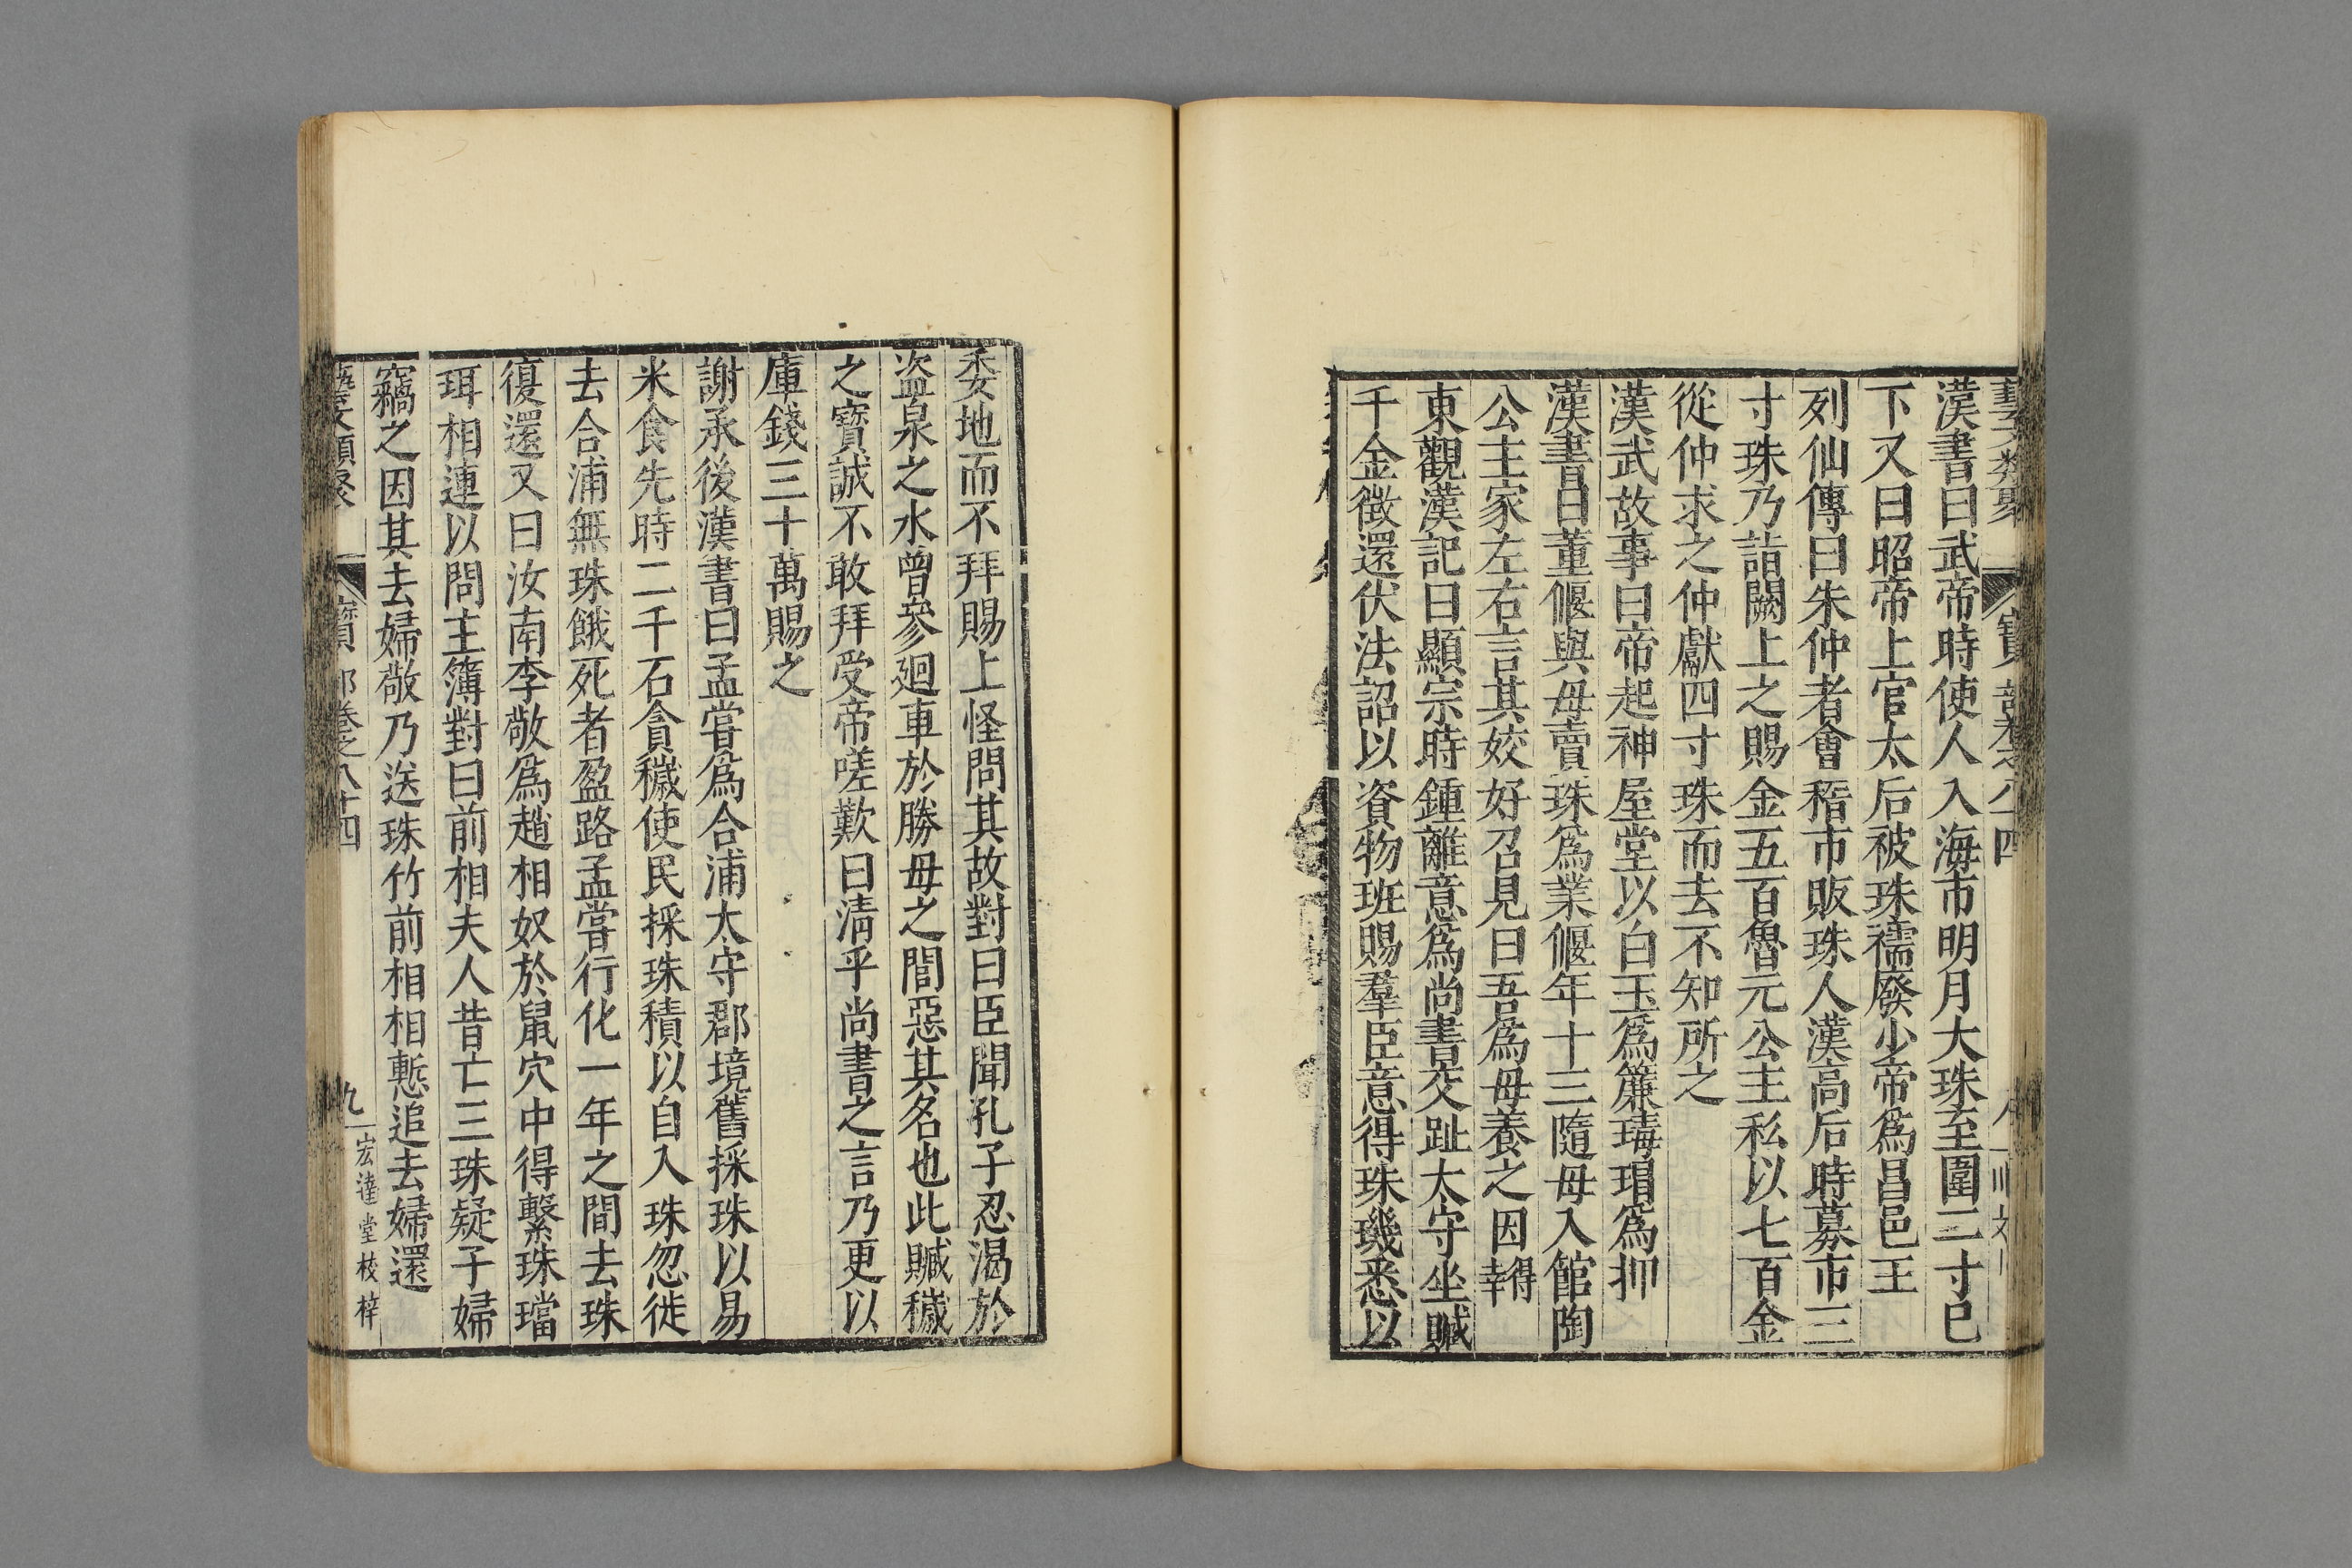 藝文類聚 寶部卷之八十四
漢書曰武帝時使人入海市明月大珠至圍二寸已
下又曰昭帝上官太后被珠襦廢少帝爲昌邑王
列仙傳曰朱仲者會稽市販珠人漢高后時募市三
寸珠乃詣闕上之賜金五百魯元公主私以七百金
從仲求之仲獻四寸珠而去不知所之
漢武故事曰帝起神屋堂以白玉爲簾瑇瑁爲押
漢書曰董偃與母賣珠爲業偃年十三隨母入館陶
公主家左右言其姣好召見曰吾爲母養之因幸得
東觀漢記曰顯宗時鍾離意爲尚書交趾太守坐贓
千金徵還伏法詔以資物班賜羣臣意得珠璣悉以
委地而不拜賜上怪問其故對曰臣聞孔子忍渴於
盜泉之水曾參迴車於勝母之閭惡其名也此贓穢
之寶誠不敢拜受帝嗟歎曰清乎尚書之言乃更以
庫錢三十萬賜之
謝承後漢書曰孟嘗爲合浦太守郡境舊採珠以易
米食先時二千石貪穢使民採珠積以自入珠忽徙
去合浦無珠餓死者盈路孟嘗行化一年之間去珠
復還又曰汝南李敬爲趙相奴於鼠穴中得繫珠璫
珥相連以問主簿對曰前相夫人昔亡三珠疑子婦
竊之因其去婦敬乃送珠竹前相相慙追去婦還
藝文類聚 寶部卷之八十四 九 宏達堂校梓